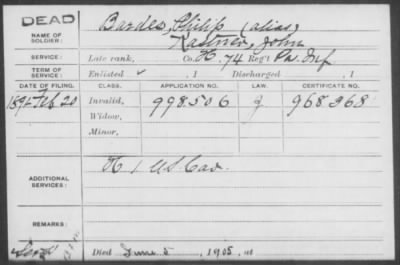 DEAD
NAME OF SOLDIER: Bardes, Philip (alias)
Kastner, John
SERVICE: Late rank, Co. H, 74 Reg't Pa. Inf
TERM OF SERVICE: Enlisted , 1 Discharged , 1
DATE OF FILING. CLASS. APPLICATION NO. LAW. CERTIFICATE NO.
1891 Feb 20 Invalid, 998.506 J 968368
Widow,
Minor,
ADDITIONAL SERVICES: H 1 US Cav.
REMARKS:
Died June 5, 1905, at